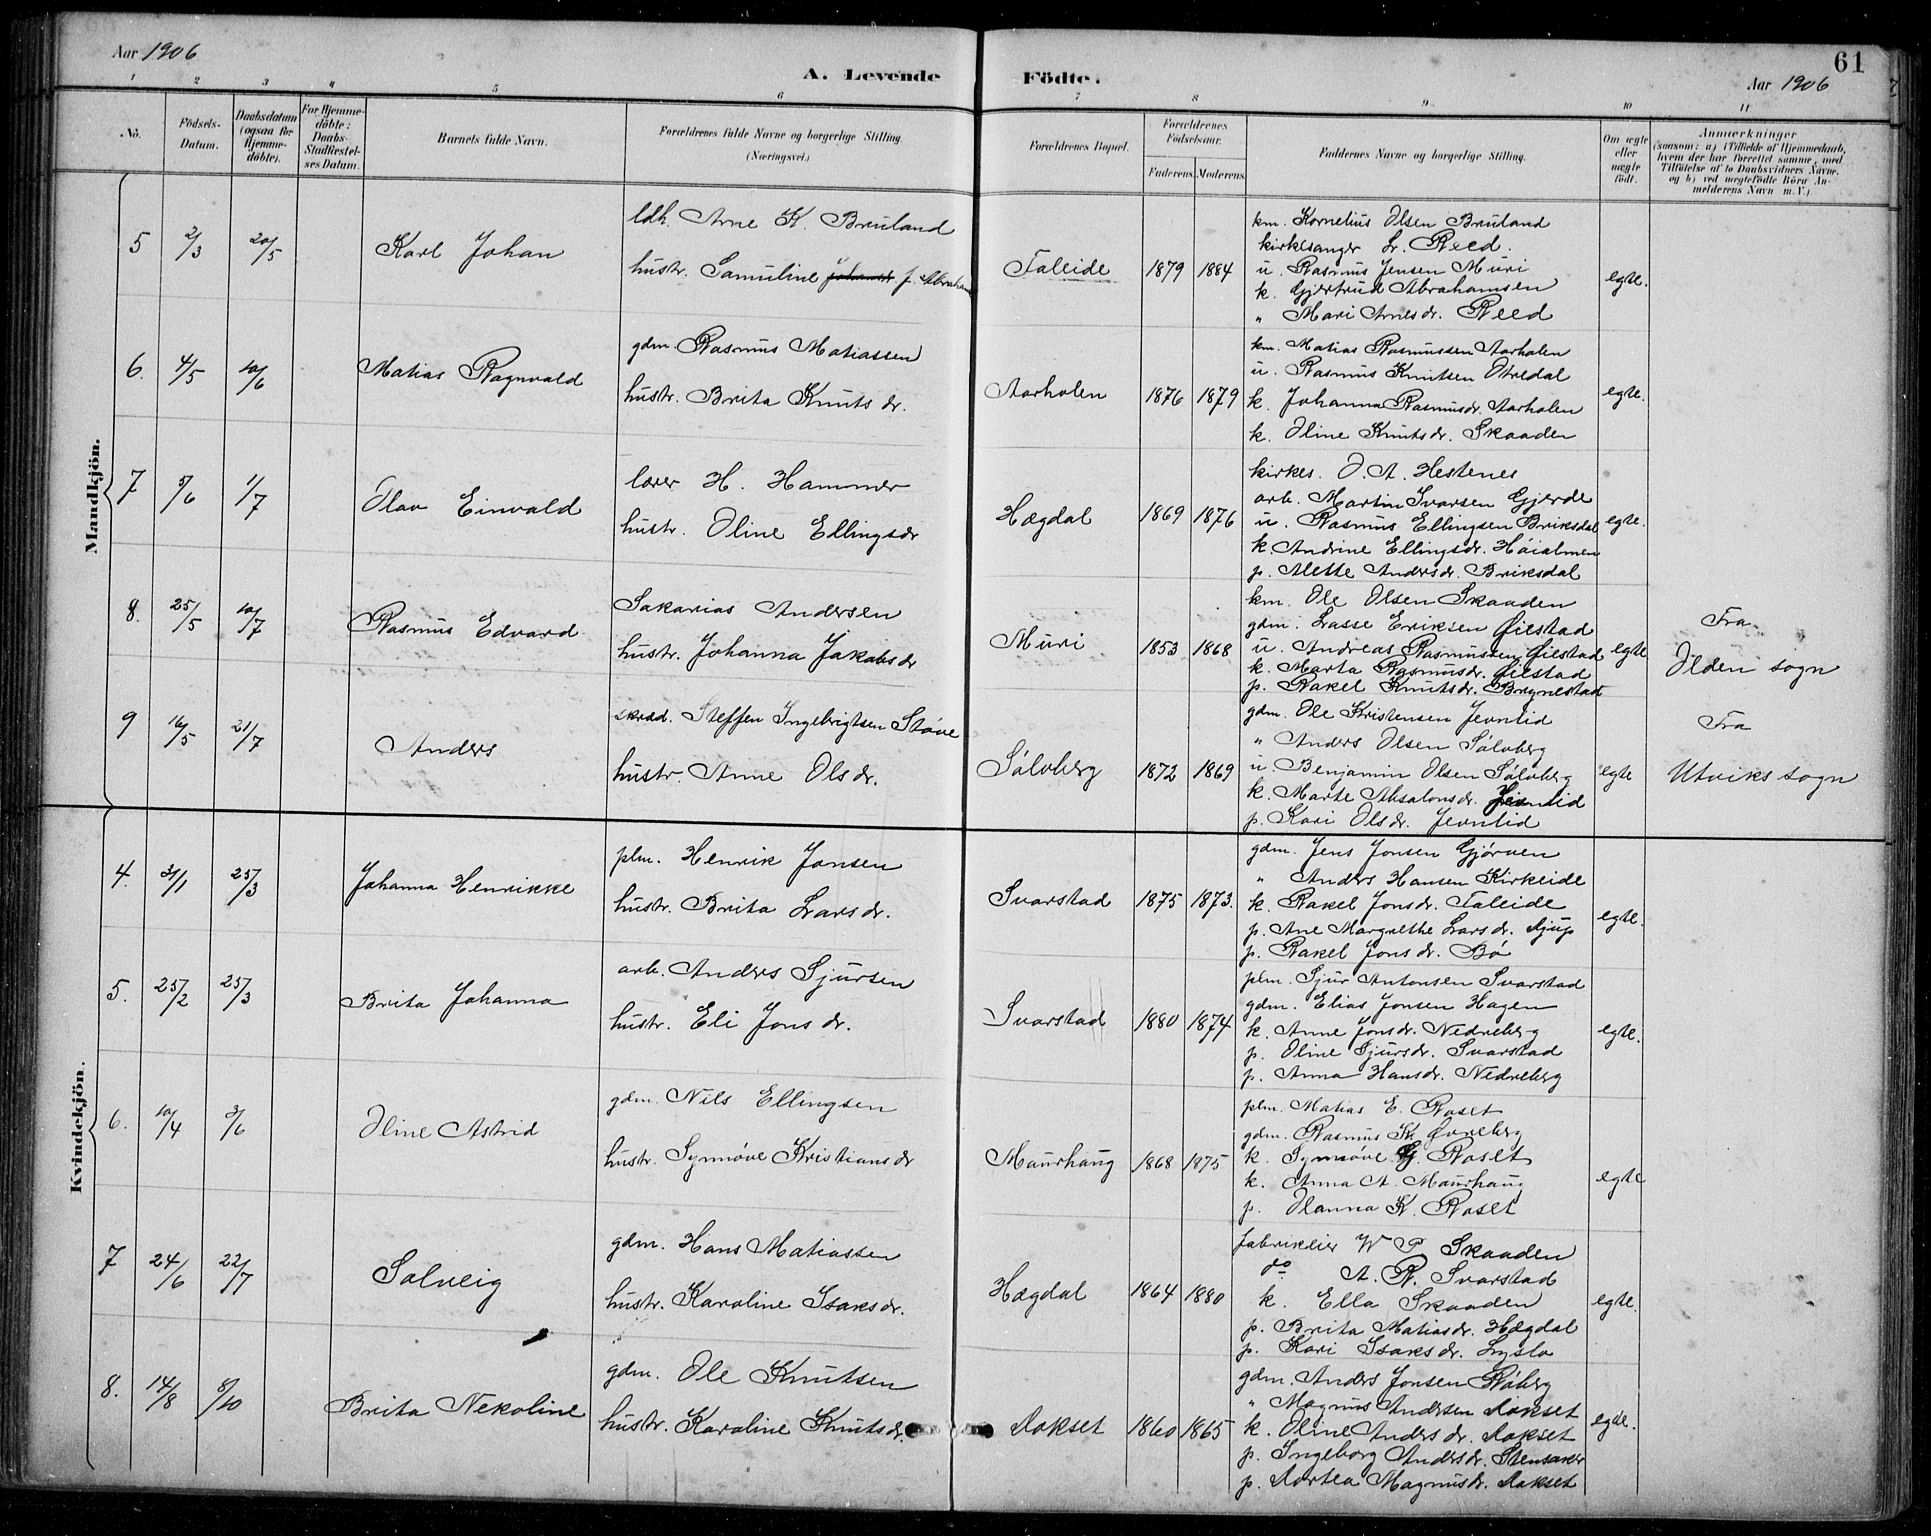 Aar 1906
A. Levende Födte.
61
Aar 1906
1 2 3 4 5 6 7 8 9 10 11
No.
Födsels-Datum.
Daabsdatum (ogsaa for Hjemme-döbte).
For Hjemme-döbte: Daabs-Stadfæstel-ses Datum.
Barnets fulde Navn.
Forældrenes fulde Navne og borgerlige Stilling. (Næringsvei.)
Forældrenes Bopæl.
Forældrenes Födselsaar.
Faderens. Moderens.
Faddernes Navne og borgerlige Stilling.
Om ægte eller uægte födt.
Anmærkninger
(saasom: a) i Tilfælde af Hjemmedaab,
hvem der har forrettet samme, med
Tilföielse af to Daabsvidners Navne,
og b) ved uægtefödte Börn An-
melderens Navn m. V.)
Mandkjön.
5 2/3 20/5 Karl Johan
ldh. Arne K. Bruland
hustr. Samuline p. Abraham
Faleide 1879 1884
km. Kornelius Olsen Bruland
kirkesanger Lr. Reed.
u. Rasmus Jensen Muri
k. Gjertrud Abrahamsen
" Mari Arnesdr. Reed
egte.
6. 4/5 10/6 Matias Ragnvald
gdm. Rasmus Matiassen
hustr. Brita Knutsdr.
Aarholen 1876 1879
km. Matias Rasmussen Aarholen
u. Rasmus Knutsen Otredal
k. Johanna Rasmusdr. Aarholen
k. Oline Knutsdr. Skaaden
egte.
7 5/6 1/7 Olav Einvald
lærer H. Hammer
hustr. Oline Ellingsdr
Hægdal 1869 1876
kirkes. O. A. Hestenes
arb. Martin Ivarsen Gjerde
u. Rasmus Ellingsen Briksdal
k. Andrine Ellingsdr. Höialmen
p. Alette Andersdr. Briksdal
egte.
8. 25/5 10/7 Rasmus Edvard
Sakarias Andersen
hustr. Johanna Jakobsdr
Muri 1853 1868
km. Ole Olsen Skaaden
gdm. Lasse Eriksen Øilstad
u. Andreas Rasmussen Øilstad
k. Marta Rasmusdr. Øilstad
p. Rakel Knutsdr. Brynestad
egte
Fra
Olden sogn
9 16/5 21/7 Anders
skræd. Steffen Ingebrigtsen Støve
hustr. Anne Olsdr.
Sølvberg 1872 1869
gdm. Ole Kristensen Jevnlid
" Anders Olsen Sølvberg
u. Benjamin Olsen Sølvberg
k. Marte Absalonsdr. Jevnlid
p. Kari Olsdr. Jevnlid
egte
Fra
Utviks sogn
Kvindekjön.
4. 31/1 25/3 Johanna Henrikke
plm. Henrik Jonsen
hustr. Brita Larsdr.
Svarstad 1875 1873.
gdm. Jens Jonsen Gjørven
" Anders Hansen Kirkeide
k. Rakel Jonsdr. Faleide
p. Ane Margrethe Larsdr.
p. Rakel Jonsdr. Bø
egte.
5. 25/2 25/3 Brita Johanna
arb. Anders Sjursen
hustr. Eli Jonsdr.
Svarstad 1880 1874
plm. Sjur Antonsen Svarstad
gdm. Elias Jonsen Hagen
k. Anne Jonsdr. Nedreberg
p. Oline Sjursdr. Svarstad
p. Anna Hansdr. Nedreberg
egte.
6. 10/4 3/6 Oline Astrid
gdm. Nils Ellingsen
hustr. Synnøve Kristiansdr
Maurhaug 1868 1875
plm. Matias E. Roset
gdm. Rasmus K. Øvreberg
k. Synnøve G. Roset
k. Anna A. Maurhaug
p. Olanna K. Roset
egte
7 24/6 22/7 Solveig
gdm. Hans Matiassen
hustr. Karoline Isaksdr.
Hægdal 1864 1880
fabrikeier W. P. Skaaden
do A. R. Svarstad
k. Ella Skaaden
p. Brita Matiasdr. Hægdal
p. Kari Isaksdr. Lyslo
egte.
8. 14/8 8/10 Brita Nekoline
gdm. Ole Knutsen
hustr. Karoline Knutsdr.
Dokset 1860 1865
gdm. Anders Jonsen Raberg
" Magnus Andersen Dokset
k. Oline Andersdr. Dokset
p. Ingeborg Andersdr. Stensaker
p. Dortea Magnusdr. Dokset
egte.